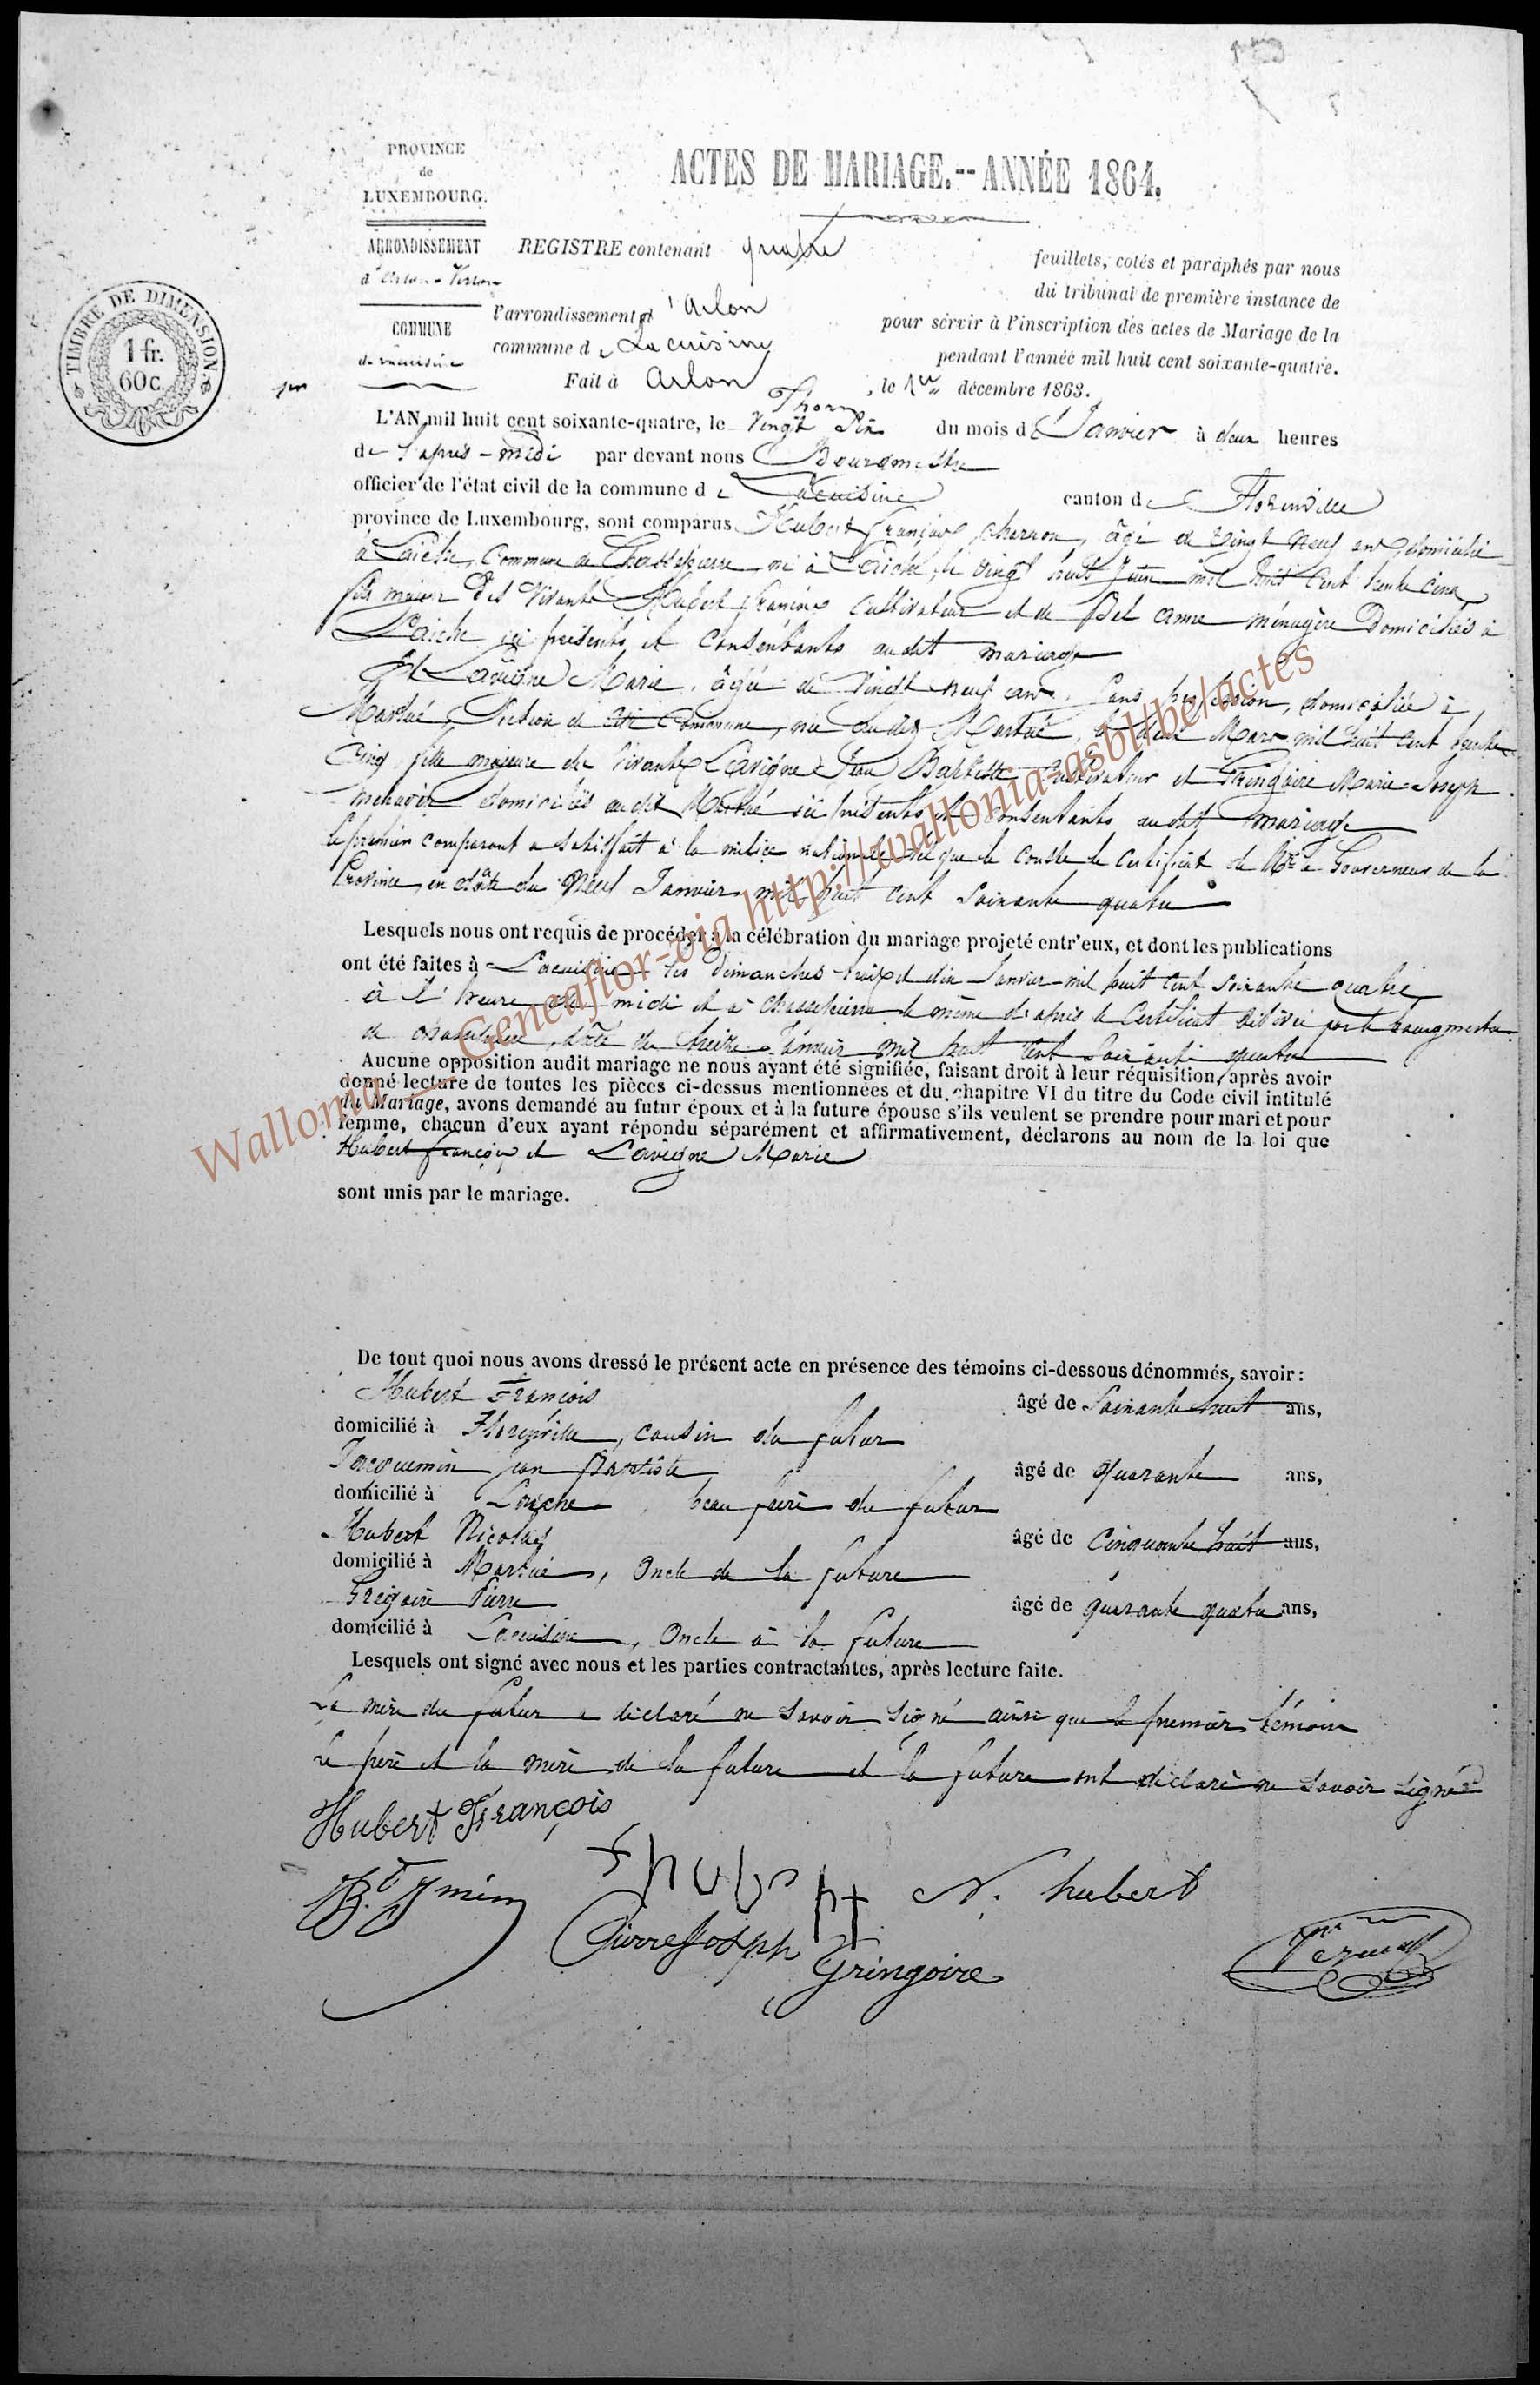 PROVINCE
de
LUXEMBOURG.
ACTES DE MARIAGE.--ANNÉE 1864.
ARRONDISSEMENT
REGISTRE contenant quatre
feuillets, cotés et paraphés par nous
du tribunal de première instance de
l'arrondissement d'Arlon
pour servir à l'inscription des actes de Mariage de la
COMMUNE
commune de Lacuisine
pendant l'année mil huit cent soixante-quatre.
Fait à Arlon, le 1er décembre 1863.
Thorn
TIMBRE DE DIMENSION
1 fr.
60 c.
L'AN mil huit cent soixante-quatre, le Vingt Six du mois de Janvier à deux heures
de l'après-midi par devant nous Bourgmestre
officier de l'état civil de la commune de Lacuisine canton de Florenville
province de Luxembourg, sont comparus Hubert François, charron, âgé de vingt neuf ans, domicilié
à Laiche, Commune de Chassepierre, né à Laiche, le vingt huit Juin mil huit Cent trente cinq
fils majeur des Vivants Hubert François Cultivateur et de Pel anne ménagère Domiciliés à
Laiche ici présents et Consentants audit mariage
Et Lavigne Marie, âgée de Vingt neuf ans, Sans profession, domiciliée à
Martué, Section de cette Commune, née audit Martué, le deux Mars mil huit cent trente
Cinq, fille majeure des Vivants Lavigne Jean Baptiste Cultivateur et Gringoire Marie Joseph
ménagère domiciliés audit Martué ici présents et consentants audit mariage
le premier comparant a satisfait à la milice nationale tel que le conste le Certificat de Mr le Gouverneur de la
Province, en date du Neuf Janvier mil huit cent Soixante quatre
Lesquels nous ont requis de procéder à la célébration du mariage projeté entr'eux, et dont les publications
ont été faites à Lacuisine les Dimanches trois et dix Janvier mil huit cent Soixante quatre
à l'heure de midi et à Chassepierre le même d'après le Certificat délivré par le bourgmestre
de Chassepierre, daté du treize Janvier mil huit Cent Soixante quatre
Aucune opposition audit mariage ne nous ayant été signifiée, faisant droit à leur réquisition, après avoir
donné lecture de toutes les pièces ci-dessus mentionnées et du chapitre VI du titre du Code civil intitulé
du Mariage, avons demandé au futur époux et à la future épouse s'ils veulent se prendre pour mari et pour
femme, chacun d'eux ayant répondu séparément et affirmativement, déclarons au nom de la loi que
Hubert François et Lavigne Marie
sont unis par le mariage.
Wallonia _ Geneaflor-via http://wallonia-asbl/be/actes
De tout quoi nous avons dressé le présent acte en présence des témoins ci-dessous dénommés, savoir :
Hubert François âgé de Soixante huit ans,
domicilié à Florenville, cousin du futur
Jacquemin Jean Baptiste âgé de quarante ans,
domicilié à Laiche, beau frère du futur
Hubert Nicolas âgé de Cinquante huit ans,
domicilié à Martué, Oncle de la future
Grégoire Pierre âgé de quarante quatre ans,
domicilié à Lacuisine, Oncle à la future
Lesquels ont signé avec nous et les parties contractantes, après lecture faite.
La mère du futur a déclaré ne savoir signé ainsi que le premier témoin
Le père et la mère de la future et la future ont déclaré ne savoir signé
Hubert François
N. hubert
Pierre Josph Gringoire